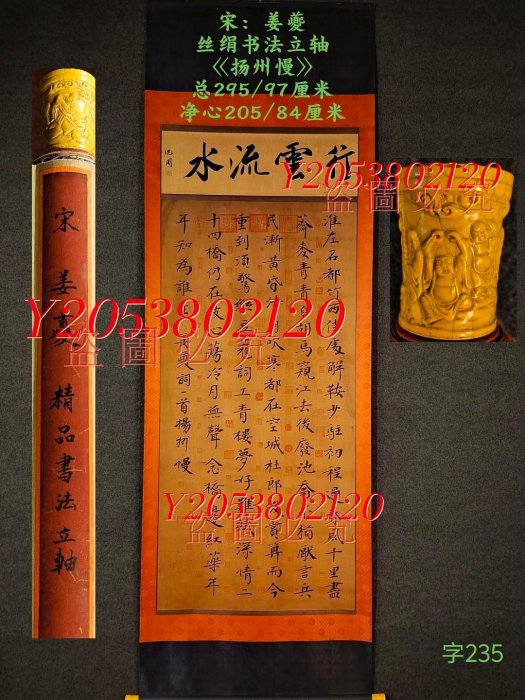 宋：姜夔
丝绢书法立轴
《扬州慢》
总295/97厘米
净心205/84厘米
行雲流水
沈周
宋 姜夔 精品書法立軸
淮左名都竹西佳處解鞍少駐初程過春風十里盡
薺麥青青自胡馬窺江去後廢池喬木猶厭言兵
民漸黃昏清角吹寒都在空城杜郎俊賞算而今
重到須驚縱豆蔻詞工青樓夢好難賦深情二
十四橋仍在波心蕩冷月無聲念橋邊紅藥年
年知為誰生姜夔詞一首揚州慢
Y2053802120
盜圖必究
Y2053802120
盜圖必究
Y2053802120
盜圖必究
字235